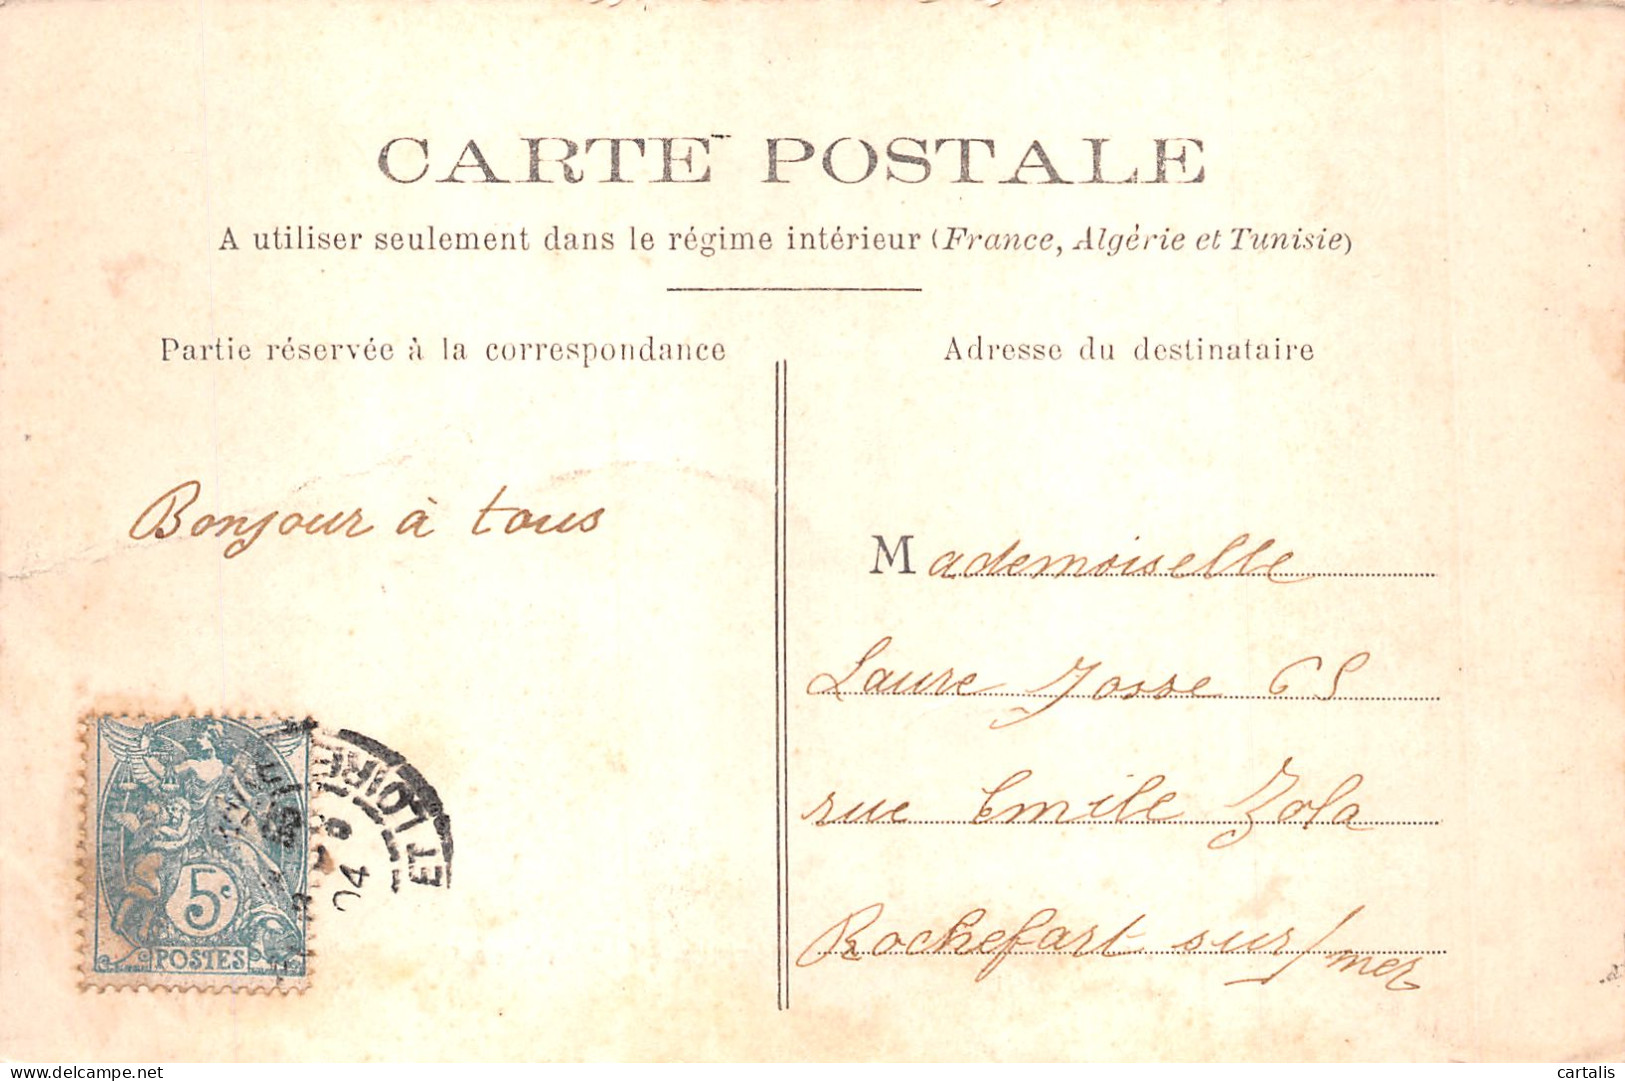 CARTE POSTALE
A utiliser seulement dans le régime intérieur (France, Algérie et Tunisie)
Partie réservée à la correspondance
Adresse du destinataire
Bonjour à tous
Mademoiselle
Laure Josse 65
rue Emile Zola
Rochefort sur/mer
5c
POSTES
ET LOIRE
04
www.delcampe.net
cartalis